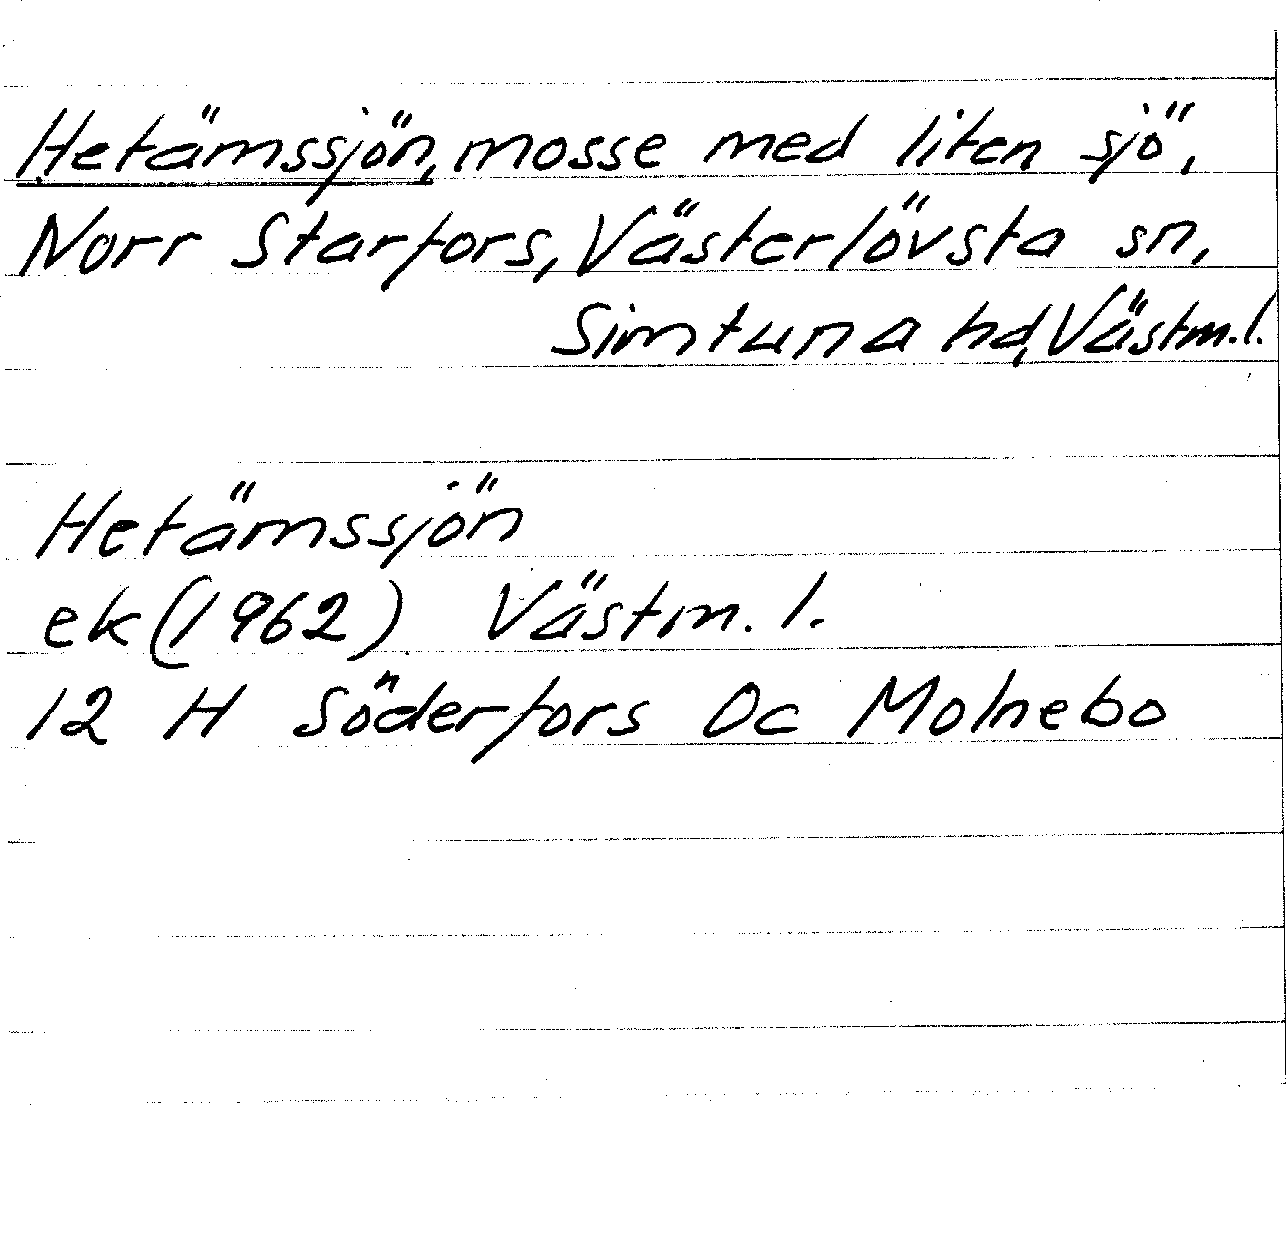 Hetämssjön, mosse med liten sjö,
Norr Starfors, Västerlövsta sn,
Simtuna hd, Västm.l.
Hetämssjön
ek (1962) Västm.l.
12 H Söderfors 0c Molnebo